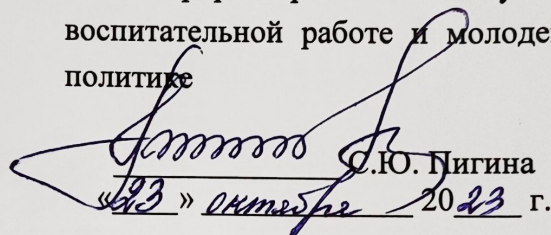 воспитательной работе и молоде
политике
С.Ю. Пигина
«23» октября 2023 г.